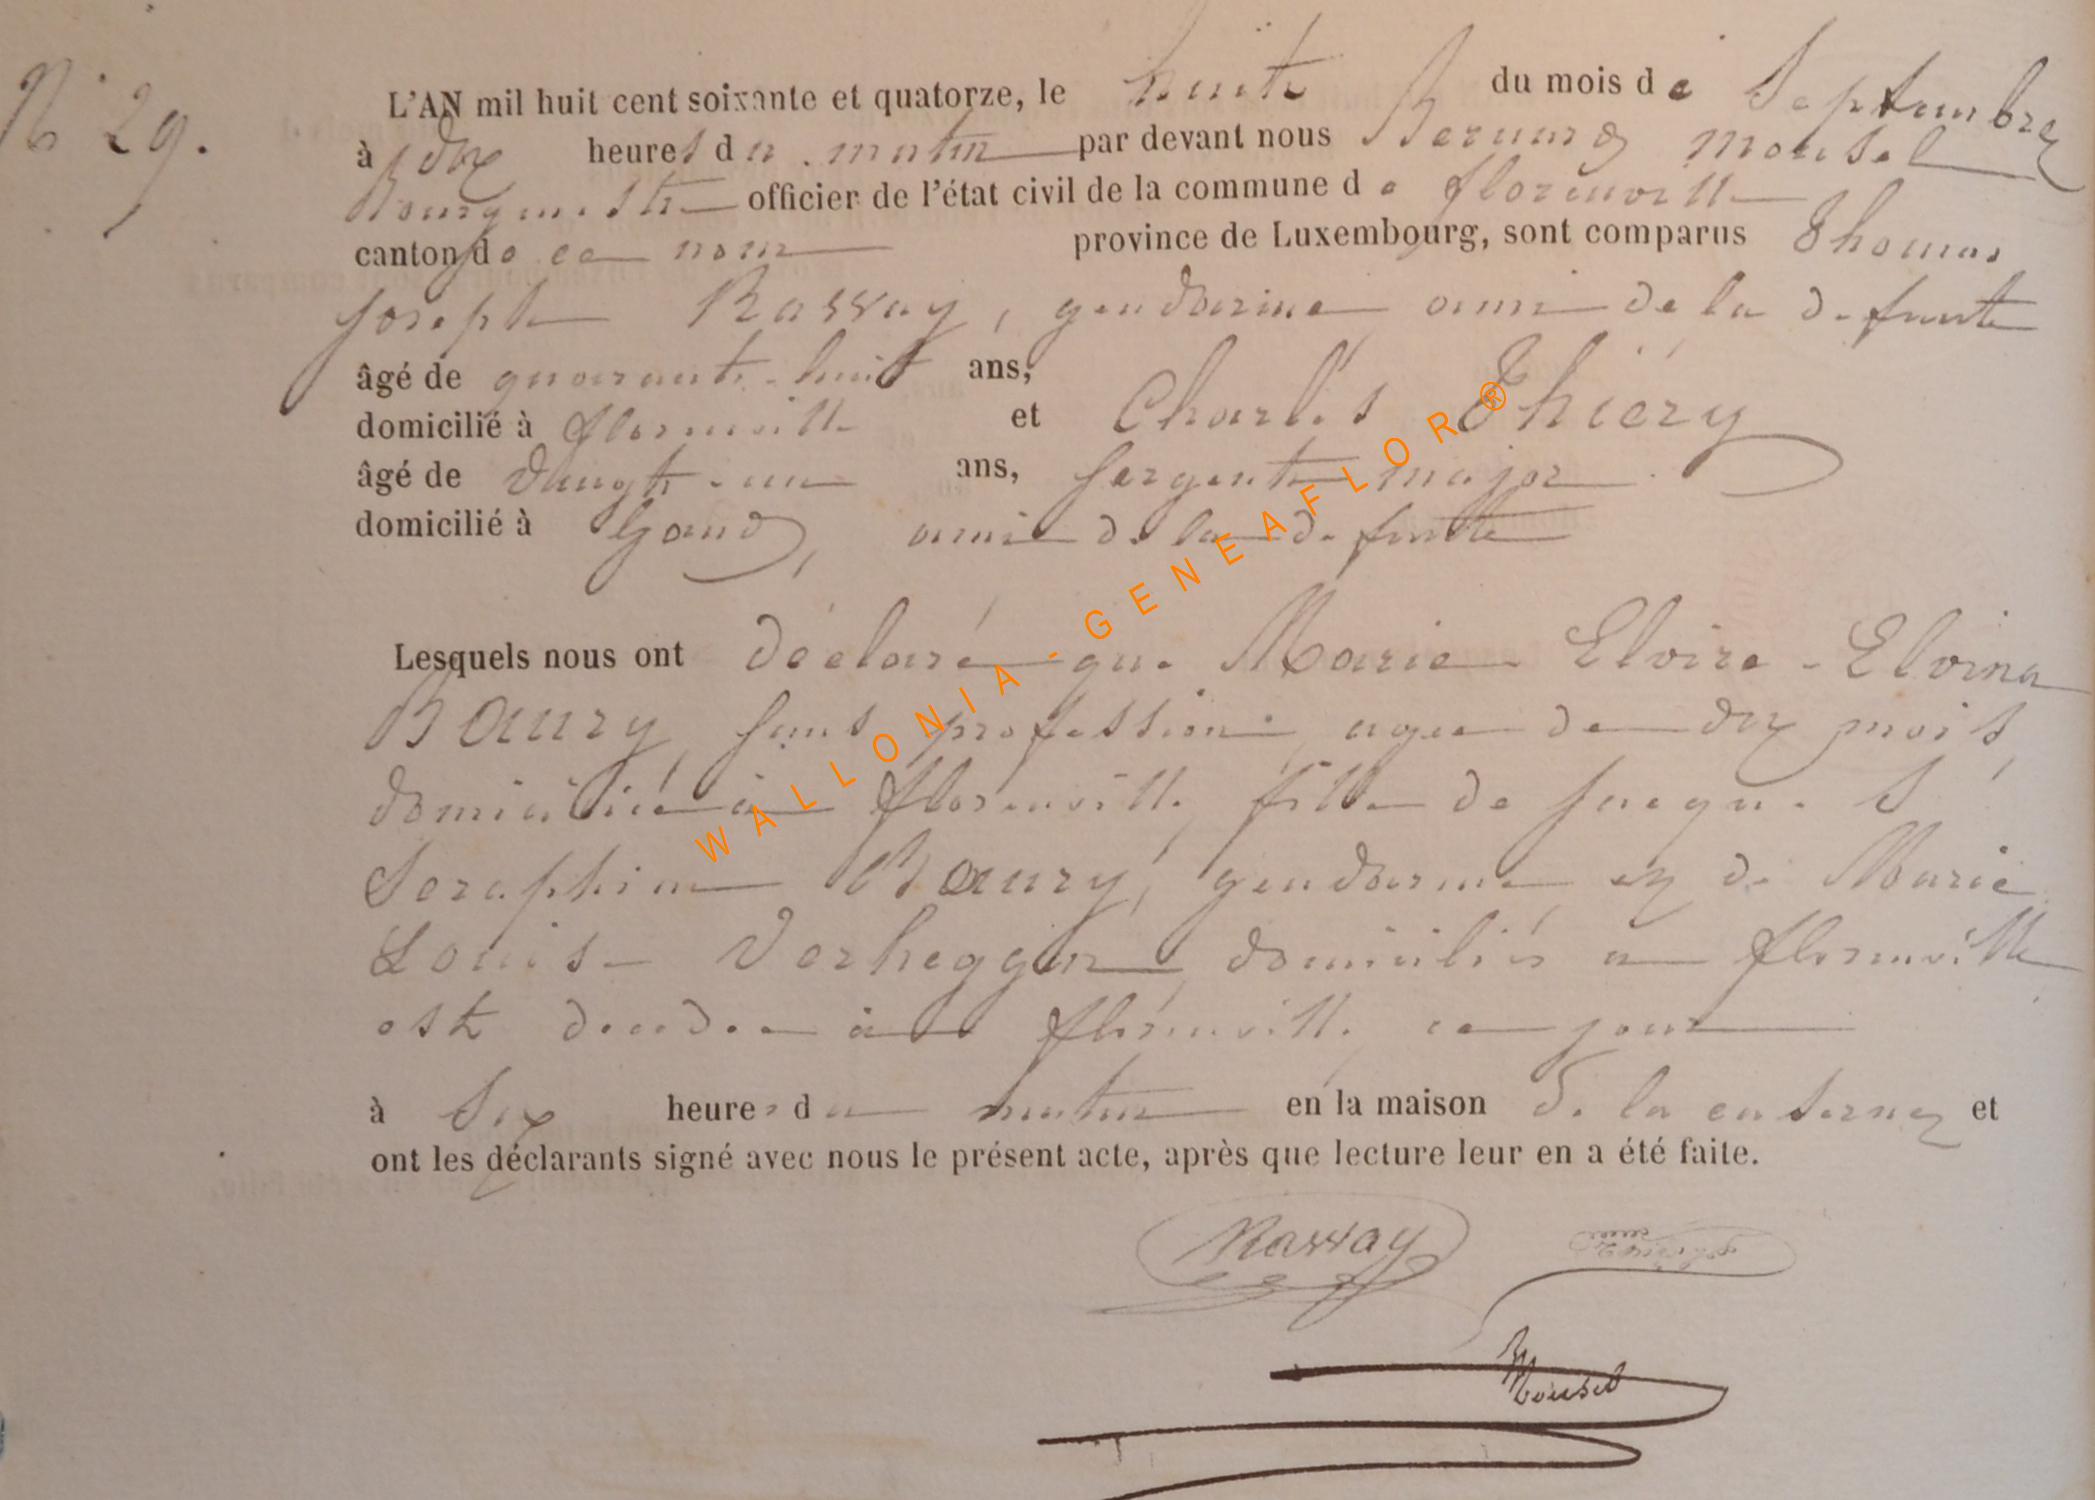 N° 29.
L'AN mil huit cent soixante et quatorze, le huit du mois de Septembre
à dix heures du matin par devant nous Bernard Mousel
Bourgmestre officier de l'état civil de la commune de florenville
canton de ce nom province de Luxembourg, sont comparus Thomas
Joseph Rassay, gendarme ami de la defunte
âgé de quarante-huit ans,
domicilié à florenville et Charles Thiéry
âgé de vingt-un ans, sergent major
domicilié à Gand, ami de la defunte
Lesquels nous ont déclaré que Marie Elvire-Elvina
Baury sans profession, agee de dix mois,
domiciliée à florenville, fille de Jacques
Seraphin Baury, gendarme et de Marie
Louise Verheggen domiciliés a florenville
est decedee à florenville, ce jour
à six heures du matin en la maison de la caserne et
ont les déclarants signé avec nous le présent acte, après que lecture leur en a été faite.
Rassay Thiery
Mousel
WALLONIA-GENEAFLOR®